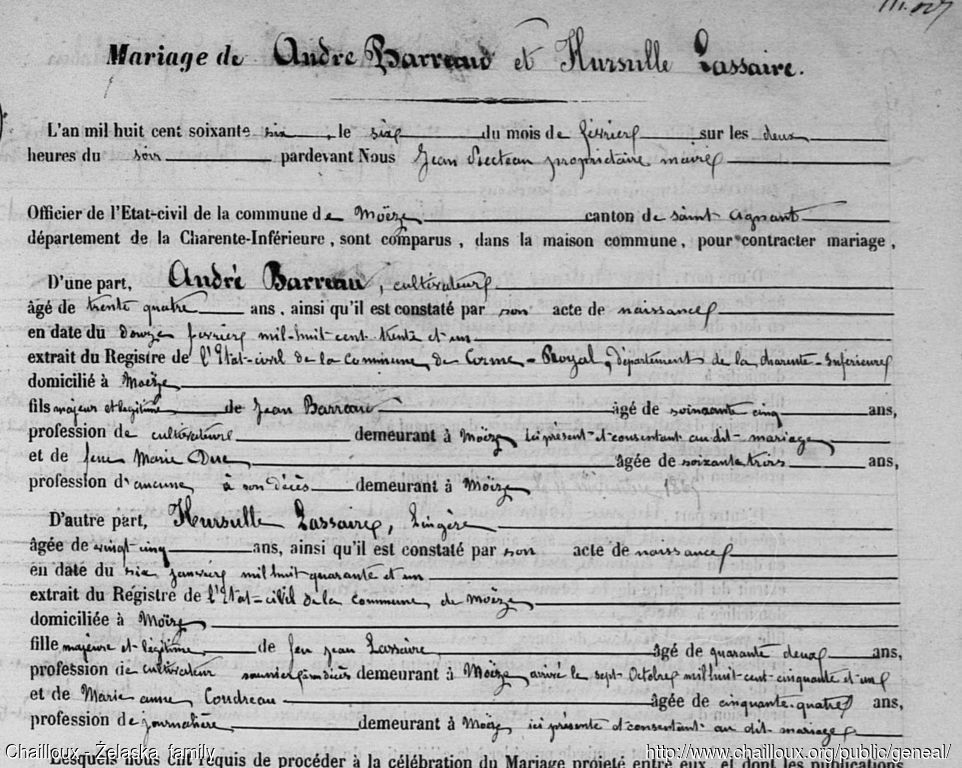 Mariage de André Barreau et Hursulle Lassaire.
L'an mil huit cent soixante six, le six du mois de février sur les deux
heures du soir pardevant Nous Jean propriétaire maire
Officier de l'Etat-civil de la commune de Moëze canton de saint agnant
département de la Charente-Inférieure, sont comparus, dans la maison commune, pour contracter mariage,
D'une part, André Barreau, cultivateur
âgé de trente quatre ans, ainsi qu'il est constaté par son acte de naissance
en date du douze février mil-huit cent trente et un
extrait du Registre de l'Etat-civil de la commune de Corme-Royal, département de la charente-Inférieure
domicilié à Moëze
fils majeur et légitime de Jean Barreau âgé de soixante cinq ans,
profession de cultivateur demeurant à Moëze ici présent et consentant au dit mariage
et de feue Marie âgée de soixante trois ans,
profession d'aucune à son décès demeurant à Moëze
D'autre part, Hursulle Lassaire, Lingère
âgée de vingt-cinq ans, ainsi qu'il est constaté par son acte de naissance
en date du six janvier mil huit quarante et un
extrait du Registre de l'Etat-civil de la commune de Moëze
domiciliée à Moëze
fille majeure et légitime de feu jean Lassaire âgé de quarante deux ans,
profession de cultivateur demeurant à Moëze arrivé le sept Octobre mil huit cent cinquante et un
et de Marie anne Coudreau âgée de cinquante-quatre ans,
profession de journalière demeurant à Moëze ici présente et consentant au dit mariage
Lesquels nous ont requis de procéder à la célébration du Mariage projeté entre eux, et dont les publications
Chailloux - Želaska family http://www.chailloux.org/public/geneal/